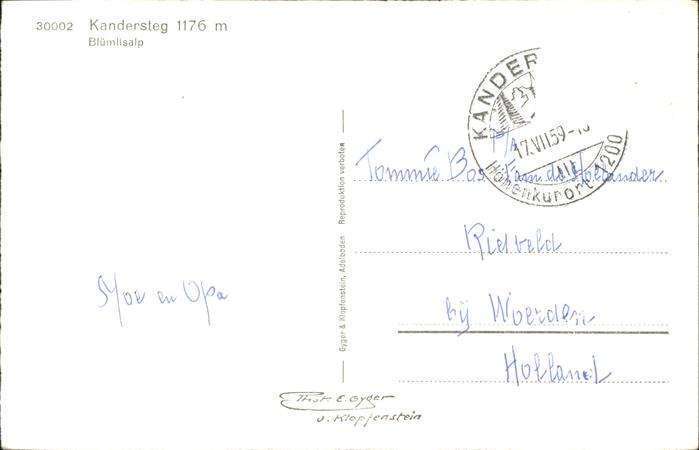 30002 Kandersteg 1176 m
Blümlisalp
KANDER
17.VII.59-
Höhenkurort 1200
Tommie Bos Fam de Hollander
Rietveld
bij Woerden
Holland
en Opa
Gyger & Klopfenstein, Adelboden Reproduktion verboten
Phot. E. Gyger
u. Klopfenstein